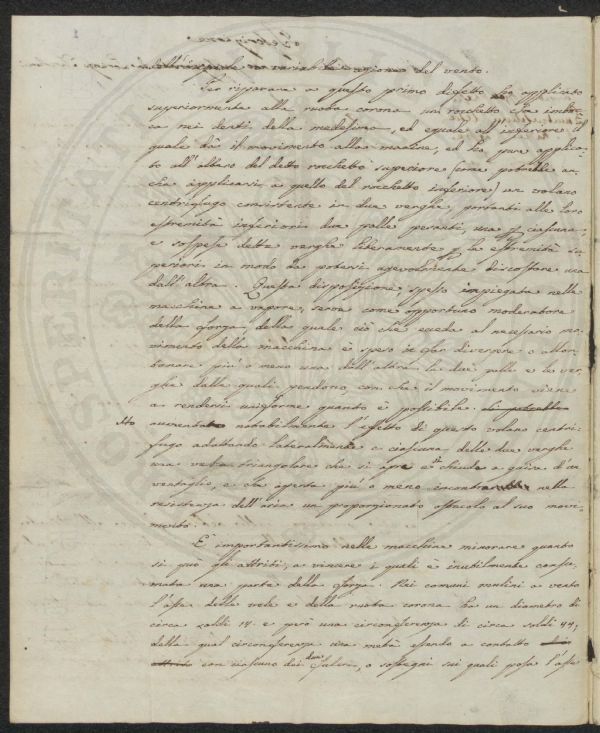 dell'ineguale e variabile azione del vento.
Per riparare a questo primo difetto ho applicato
superiormente alla ruota corona un rocchetto che imboc=
ca nei denti della medesima, ed eguale al inferiore il
quale dà il movimento alla macine, ed ho pure applica=
to all'albero del detto rocchetto superiore (come potrebbe an=
che applicarsi a quello del rocchetto inferiore) un volano
centrifugo consistente in due verghe portanti alle loro
estremità inferiori due palle pesanti, una p ciascuna
e sospese dette verghe liberamente p le estremità su=
periori in modo da potersi agevolmente discostare una
dall'altra. Questa disposizione, spesso impiegata nelle
macchine a vapore, serve come opportuno moderatore
della forza, della quale ciò che eccede al necessario mo=
vimento della macchina è speso in far divergere o allon=
tanare più o meno una dall'altra le due palle e le ver=
ghe dalle quali pendono, con che il movimento viene
a rendersi uniforme quanto è possibile. Si potrebbe
Ho aumentato notabilmente l'effetto di questo volano centri=
fugo adattando lateralmente a ciascuna delle due verghe
una vela triangolare che si apre e si chiude a guisa d'un
ventaglio, e che aperta più o meno incontra nella
resistenza dell'aria un proporzionato ostacolo al suo movi=
mento.
È importantissimo nelle macchine minorare quanto
si può gli attriti, a vincere i quali è inutilmente consu=
mata una parte della forza. Nei comuni mulini a vento
l'asse delle vele e della ruota corona ha un diametro di
circa soldi 14 e però una circonferenza di circa soldi 44,
della qual circonferenza una metà essendo a contatto
attrito con ciascuno dei due o sostegni sui quali posa l'asse